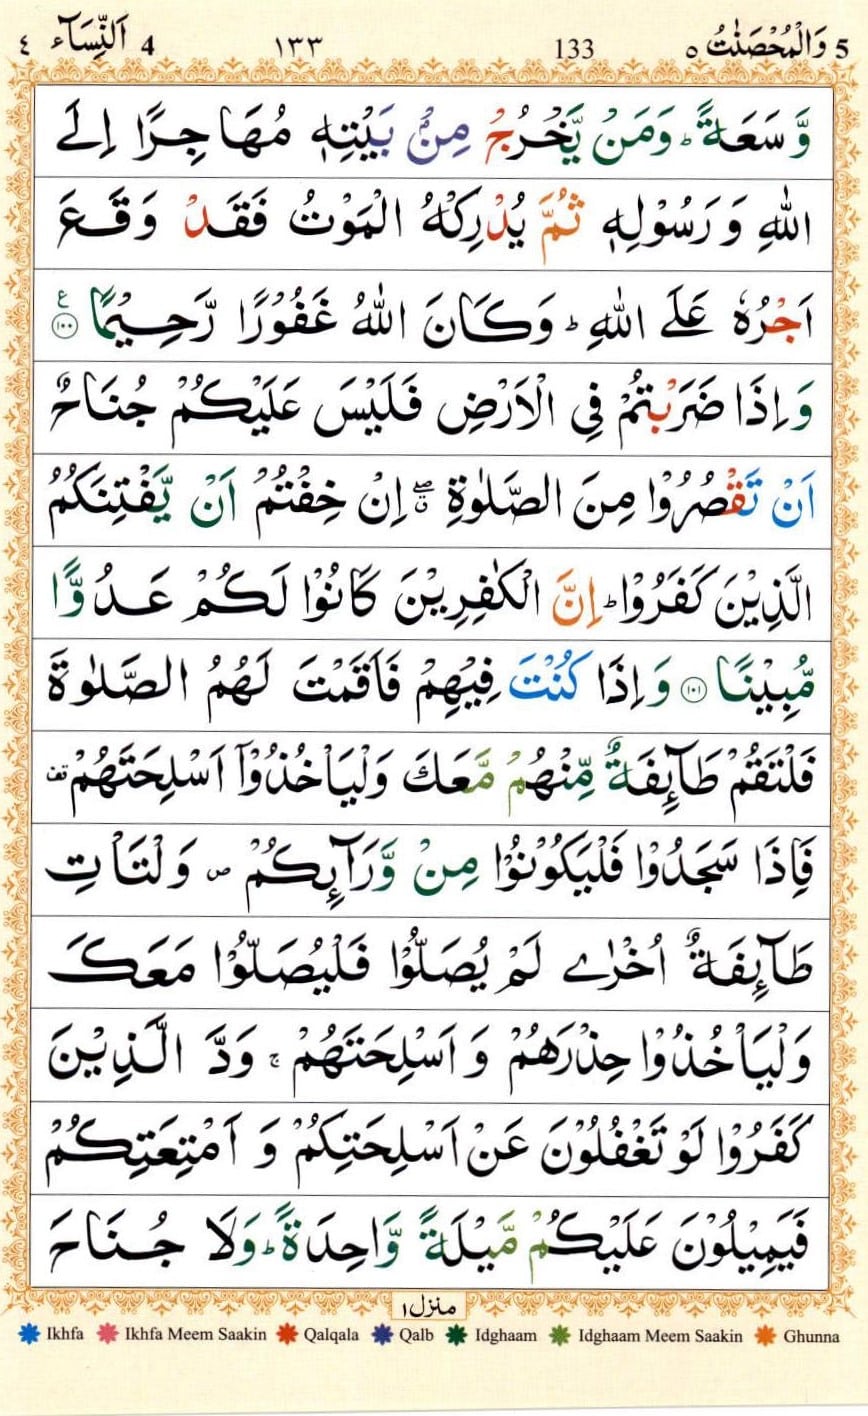 5 وَالْمُحْصَنٰتُ ٥ 133 ١٣٣ 4 اَلنِّسَآء ٤
وَّسَعَةً ؕ وَمَنْ يَّخْرُجْ مِنْۢ بَيْتِهٖ مُهَاجِرًا اِلَى
اللّٰهِ وَ رَسُوْلِهٖ ثُمَّ يُدْرِكْهُ الْمَوْتُ فَقَدْ وَقَعَ
اَجْرُهٗ عَلَى اللّٰهِ ؕ وَكَانَ اللّٰهُ غَفُوْرًا رَّحِيْمًا ۧ ١٠٠
وَاِذَا ضَرَبْتُمْ فِي الْاَرْضِ فَلَيْسَ عَلَيْكُمْ جُنَاحٌ
اَنْ تَقْصُرُوْا مِنَ الصَّلٰوةِ ۖ اِنْ خِفْتُمْ اَنْ يَّفْتِنَكُمُ
الَّذِيْنَ كَفَرُوْا ؕ اِنَّ الْكٰفِرِيْنَ كَانُوْا لَكُمْ عَدُوًّا
مُّبِيْنًا ١٠١ وَاِذَا كُنْتَ فِيْهِمْ فَاَقَمْتَ لَهُمُ الصَّلٰوةَ
فَلْتَقُمْ طَآئِفَةٌ مِّنْهُمْ مَّعَكَ وَلْيَاْخُذُوْۤا اَسْلِحَتَهُمْ قف
فَاِذَا سَجَدُوْا فَلْيَكُوْنُوْا مِنْ وَّرَآئِكُمْ ص وَلْتَاْتِ
طَآئِفَةٌ اُخْرٰى لَمْ يُصَلُّوْا فَلْيُصَلُّوْا مَعَكَ
وَلْيَاْخُذُوْا حِذْرَهُمْ وَ اَسْلِحَتَهُمْ ۚ وَدَّ الَّذِيْنَ
كَفَرُوْا لَوْ تَغْفُلُوْنَ عَنْ اَسْلِحَتِكُمْ وَ اَمْتِعَتِكُمْ
فَيَمِيْلُوْنَ عَلَيْكُمْ مَّيْلَةً وَّاحِدَةً ؕ وَلَا جُنَاحَ
منزل ١
Ikhfa Ikhfa Meem Saakin Qalqala Qalb Idghaam Idghaam Meem Saakin Ghunna